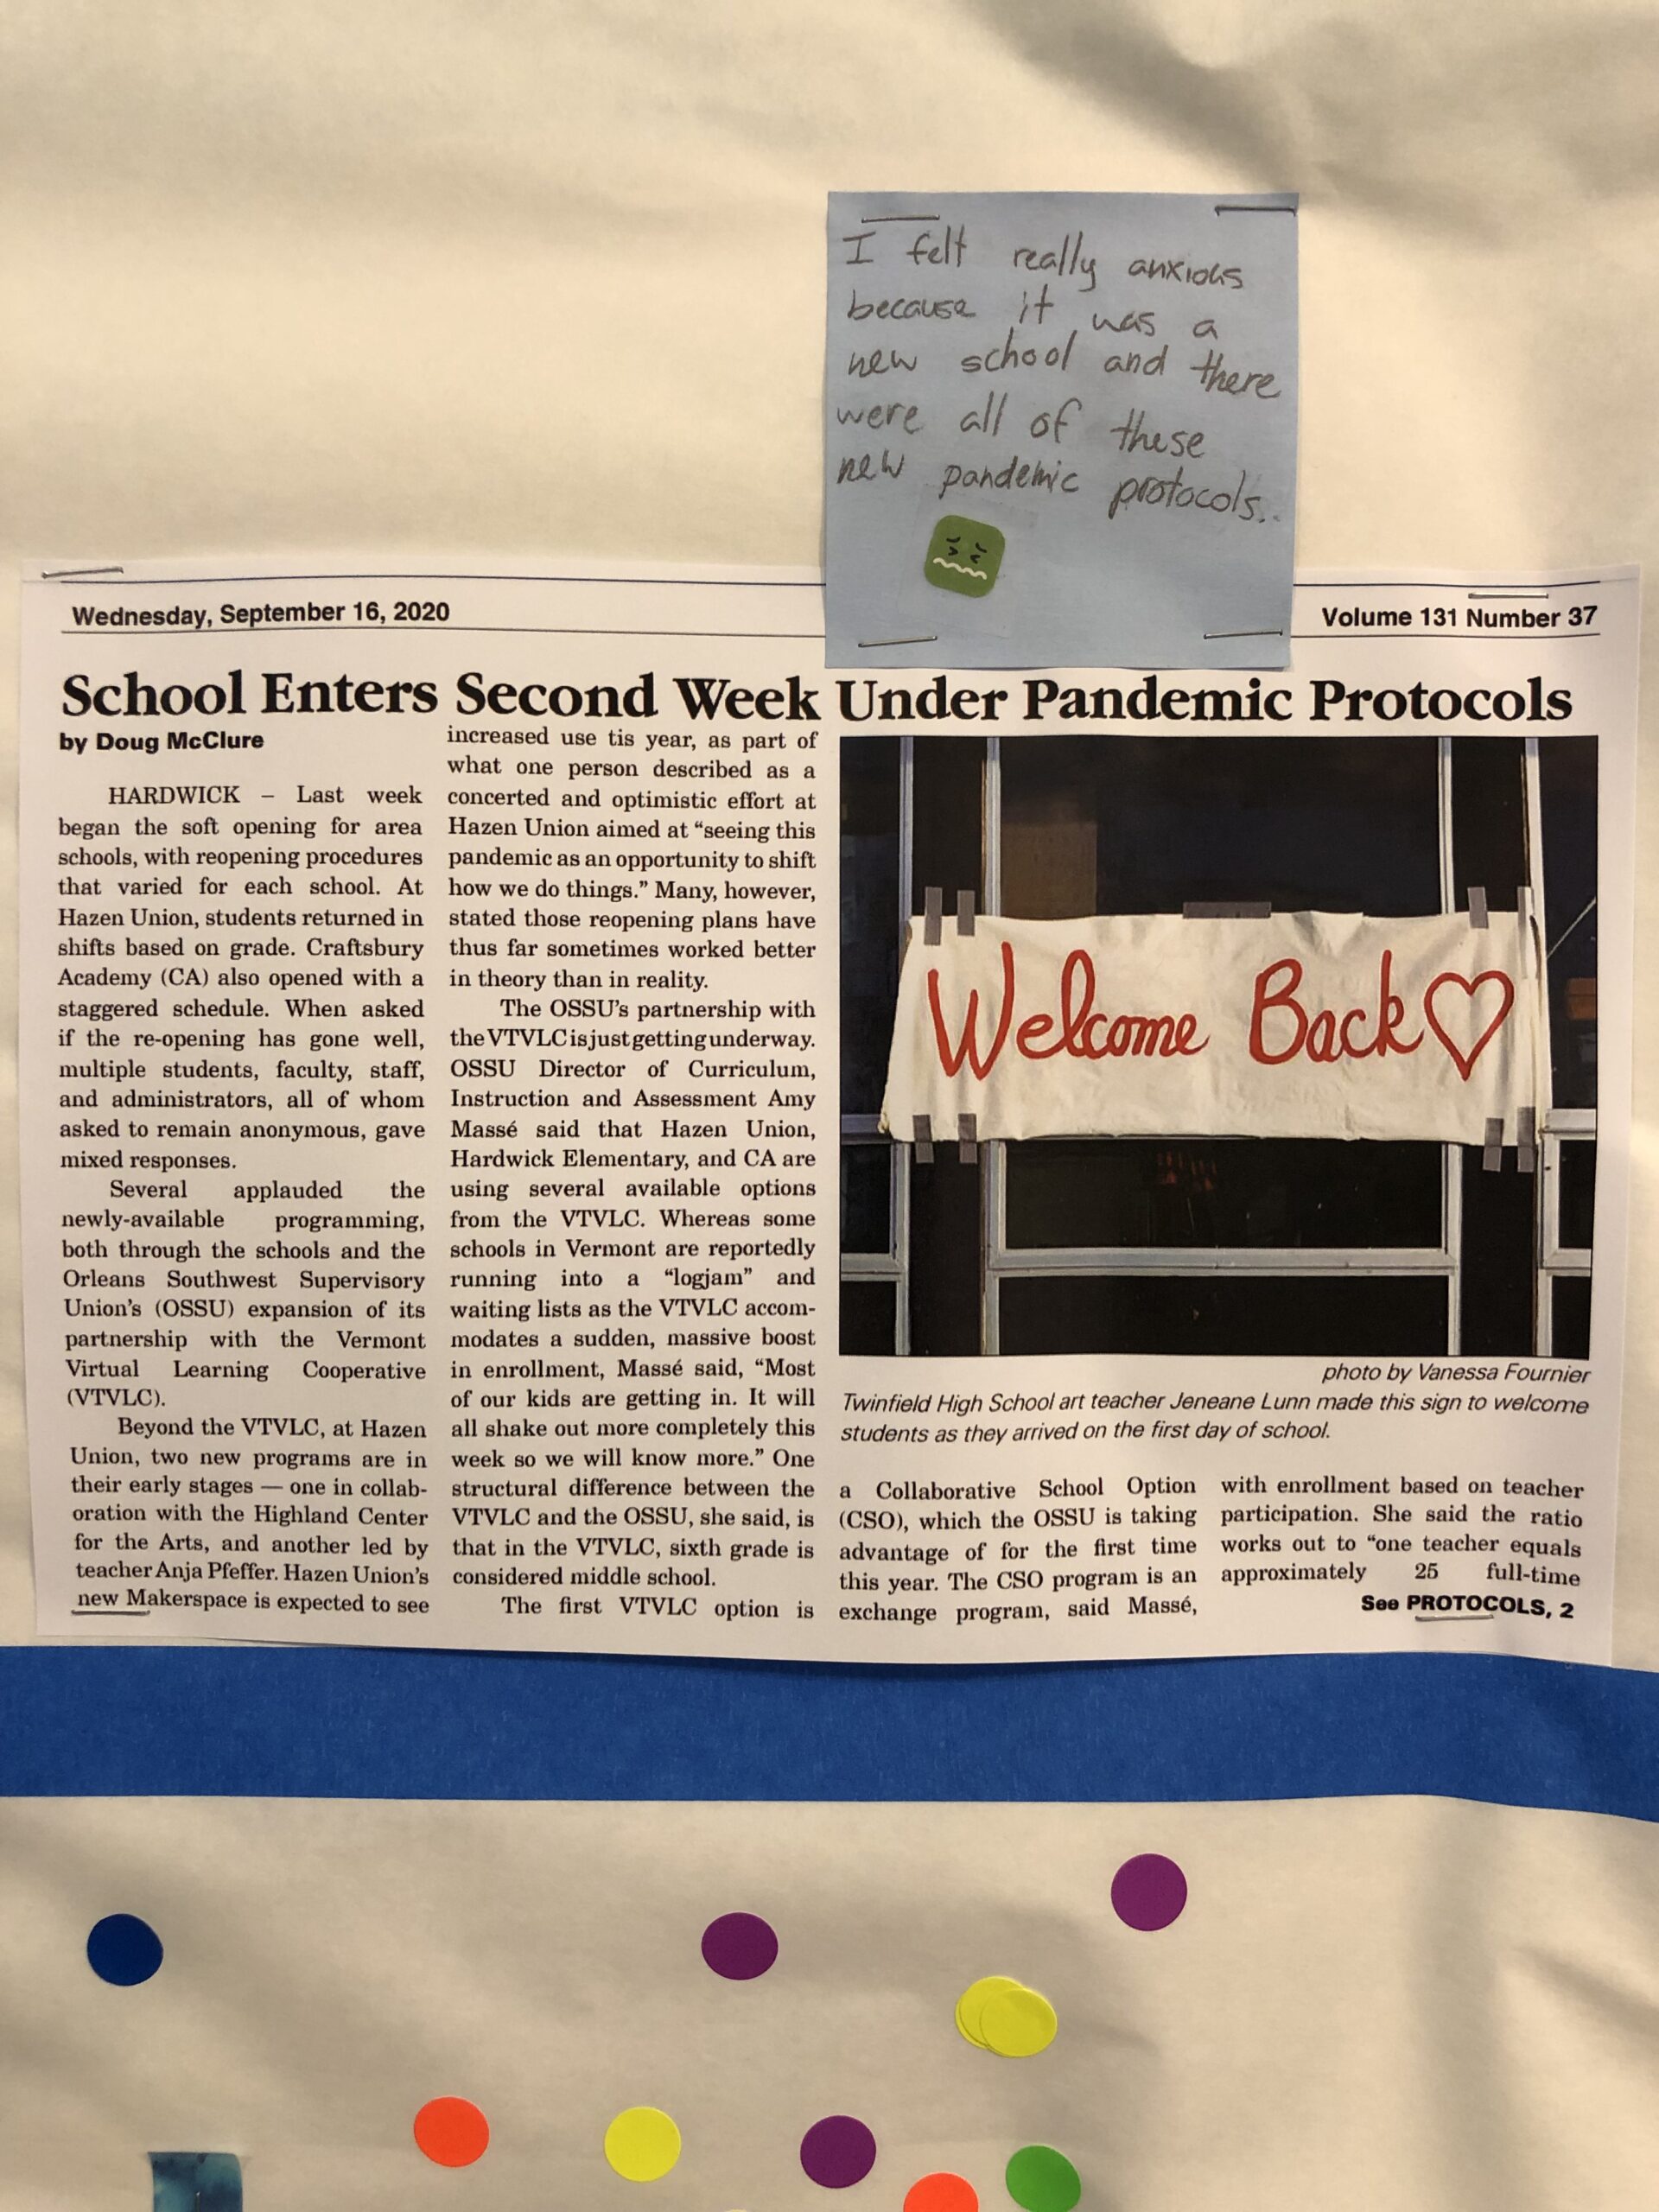 I felt really anxious
because it was a
new school and there
were all of these
new pandemic protocols..
Wednesday, September 16, 2020
Volume 131 Number 37
School Enters Second Week Under Pandemic Protocols
by Doug McClure
HARDWICK – Last week
began the soft opening for area
schools, with reopening procedures
that varied for each school. At
Hazen Union, students returned in
shifts based on grade. Craftsbury
Academy (CA) also opened with a
staggered schedule. When asked
if the re-opening has gone well,
multiple students, faculty, staff,
and administrators, all of whom
asked to remain anonymous, gave
mixed responses.
Several applauded the
newly-available programming,
both through the schools and the
Orleans Southwest Supervisory
Union's (OSSU) expansion of its
partnership with the Vermont
Virtual Learning Cooperative
(VTVLC).
Beyond the VTVLC, at Hazen
Union, two new programs are in
their early stages — one in collab-
oration with the Highland Center
for the Arts, and another led by
teacher Anja Pfeffer. Hazen Union's
new Makerspace is expected to see
increased use tis year, as part of
what one person described as a
concerted and optimistic effort at
Hazen Union aimed at “seeing this
pandemic as an opportunity to shift
how we do things.” Many, however,
stated those reopening plans have
thus far sometimes worked better
in theory than in reality.
The OSSU's partnership with
the VTVLC is just getting underway.
OSSU Director of Curriculum,
Instruction and Assessment Amy
Massé said that Hazen Union,
Hardwick Elementary, and CA are
using several available options
from the VTVLC. Whereas some
schools in Vermont are reportedly
running into a “logjam” and
waiting lists as the VTVLC accom-
modates a sudden, massive boost
in enrollment, Massé said, “Most
of our kids are getting in. It will
all shake out more completely this
week so we will know more.” One
structural difference between the
VTVLC and the OSSU, she said, is
that in the VTVLC, sixth grade is
considered middle school.
The first VTVLC option is
Welcome Back
photo by Vanessa Fournier
Twinfield High School art teacher Jeneane Lunn made this sign to welcome
students as they arrived on the first day of school.
a Collaborative School Option
(CSO), which the OSSU is taking
advantage of for the first time
this year. The CSO program is an
exchange program, said Massé,
with enrollment based on teacher
participation. She said the ratio
works out to “one teacher equals
approximately 25 full-time
See PROTOCOLS, 2